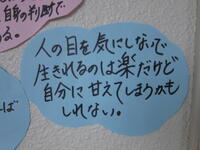 自身の判断で
る。
人の目を気にしないで
生きれるのは楽だけど
自分に甘えてしまうかも
しれない。
ば